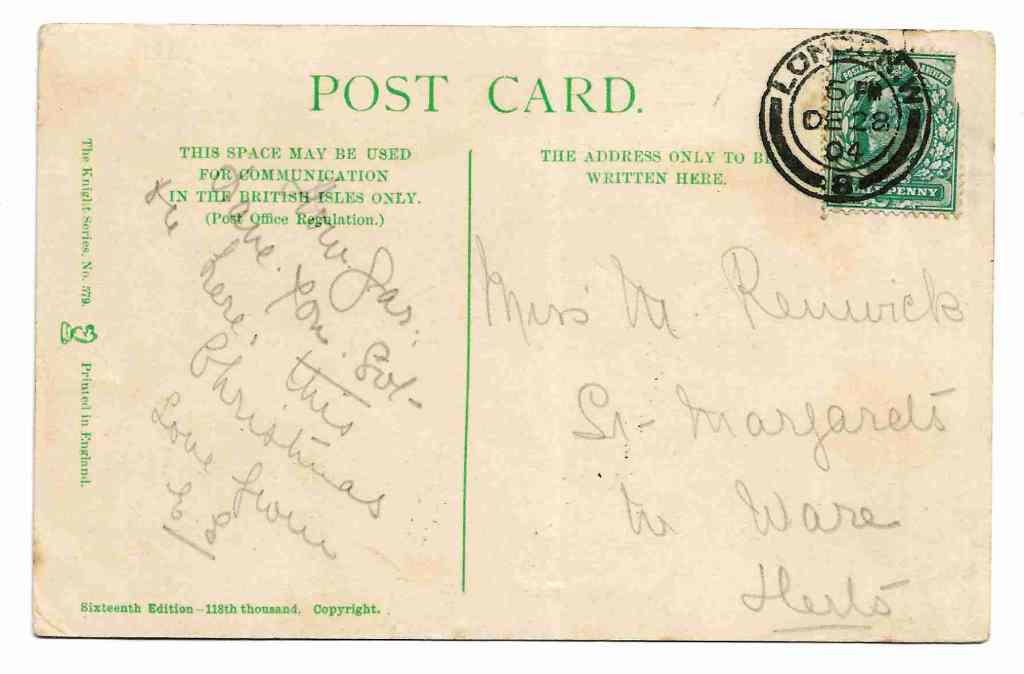 POST CARD.
THIS SPACE MAY BE USED
FOR COMMUNICATION
IN THE BRITISH ISLES ONLY.
(Post Office Regulation.)
THE ADDRESS ONLY TO BE
WRITTEN HERE.
LONDON. W
5 PM
DE 28
04
8
POSTAGE & REVENUE
HALFPENNY
The Knight Series. No. 579.
Printed in England.
this
here.
Christmas
Love from
Miss M. Renwick
St. Margarets
Nr Ware
Herts
Sixteenth Edition—118th thousand. Copyright.